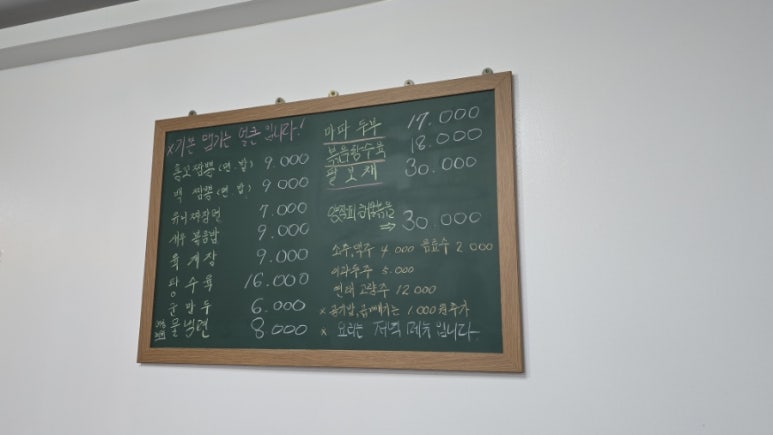 ※기본 맵기는 얼큰 입니다!
홍보짬뽕(면.밥) 9.000
백 짬뽕(면 밥) 9.000
유니짜장면 7.000
새우 볶음밥 9.000
육개장 9.000
탕수육 16.000
군만두 6.000
물냉면 8000
마파두부 17.000
볶음탕수육 18.000
팔보채 30.000
⇒ 30.000
소주,맥주 4 000 음료수 2 000
이과두주 5.000
연태 고량주 12 000
※ 공기밥, 곱빼기는 1000원추가
※ 요리는 저녁 메뉴 입니다.